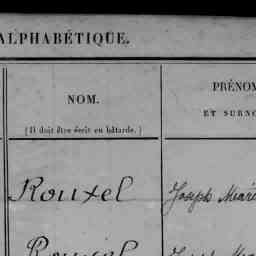 ALPHABÉTIQUE.
NOM.
(Il doit être écrit en bâtarde.)
PRÉNOM
ET SURNO
Rouxel
Joseph